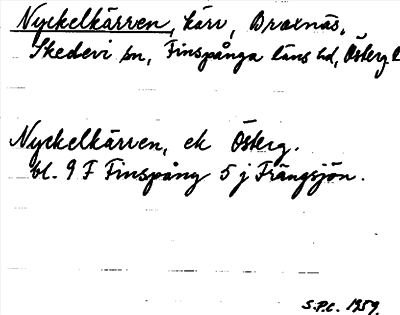 Nyckelkärren, kärr, Braxnäs,
Skedevi sn, Finspånga läns hd, Österg.
Nyckelkärren, ek Österg.
bl. 9 F Finspång 5 j Frängsjön.
S.P.C. 1959.